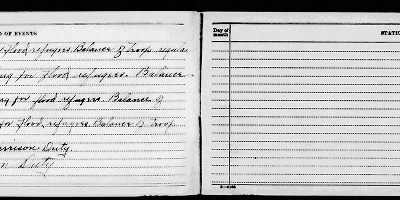 D OF EVENTS
flood refugees. Balance of troop repairs
ing for flood refugees. Balance
ng for flood refugees. Balance of
for flood refugees. Balance of troop
arrison Duty.
on Duty
Day of
month
STATIO